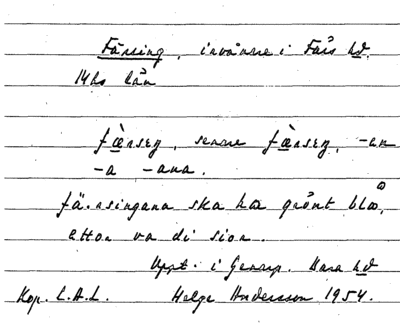 Färsing, invånare i Färs hd.
Mhs län
fæ̀rseŋ, senare fæ̀rseŋ, -en
-a -ana.
fä.rsingana ska ha grönt blo,
etton va di sion.
Uppt. i Genarp. Bara hd
Kop. L.A.L. Helge Andersson 1954.